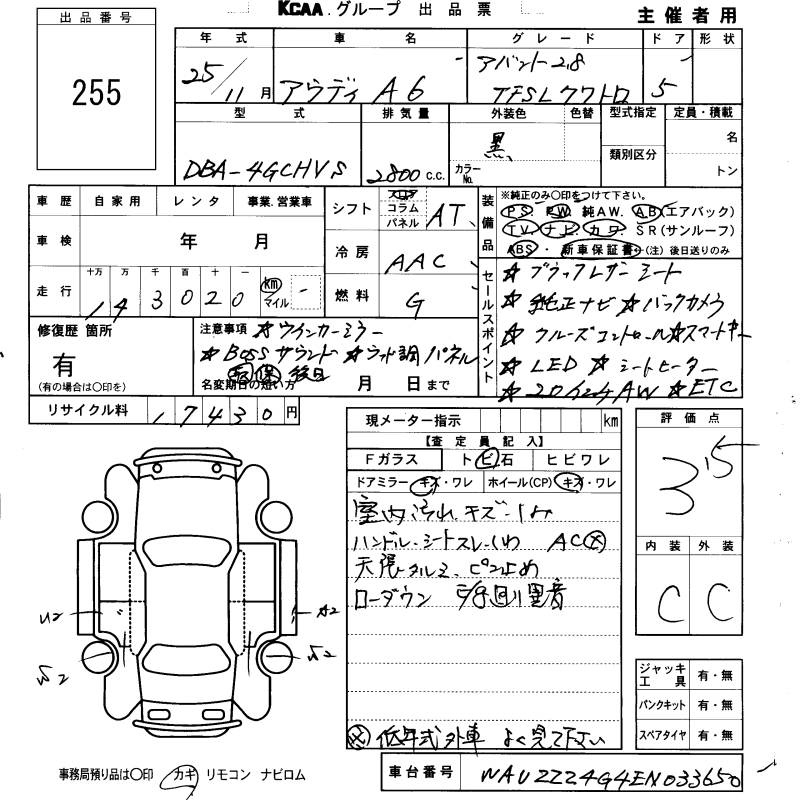 KCAA.グループ 出品票
主催者用
出品番号
255
年式 車名 グレード ドア 形状
25/11月 アウディ A6 アバント2.8 TFSIクワトロ 5
型式 排気量 外装色 色替 型式指定 定員・積載
DBA-4GCHVS 2800c.c. 黒 カラーNo. 類別区分 名 トン
車歴 自家用 レンタ 事業.営業車
シフト フロア コラム パネル AT
装備品 ※純正のみ〇印をつけて下さい。
PS. PW. 純AW. AB(エアバック)
TV. ナビ. カワ. SR(サンルーフ)
ABS・新車保証書←(注)後日送りのみ
車検 年 月
冷房 AAC
走行 十万 万 千 百 十 一
143020 km マイル
燃料 G
セールスポイント
★ブラックレザーシート
★純正ナビ ★バックカメラ
★クルーズコントロール★スマートキー
★LED ★シートヒーター
★20インチAW ★ETC
修復歴 箇所
有
(有の場合は〇印を)
注意事項 ★ウインカーミラー
★BOSEサウンド ★ウッド調パネル
取 保 後日
名変期日の短い方 月 日まで
リサイクル料 17430円
現メーター指示 km
【査定員記入】
Fガラス トビ石 ヒビワレ
ドアミラー キズ・ワレ ホイール(CP) キズ・ワレ
室内汚れ.キズ.シミ
ハンドル.シートスレ.シワ AC
天張タルミ.ピン止め
ローダウン 異音
低年式外車 よく見て下さい
評価点
3.5
内装 外装
C C
U2
A2
ジャッキ工具 有・無
パンクキット 有・無
スペアタイヤ 有・無
事務局預り品は〇印 カギ リモコン ナビロム
車台番号 WAUZZZ4G4EN033650